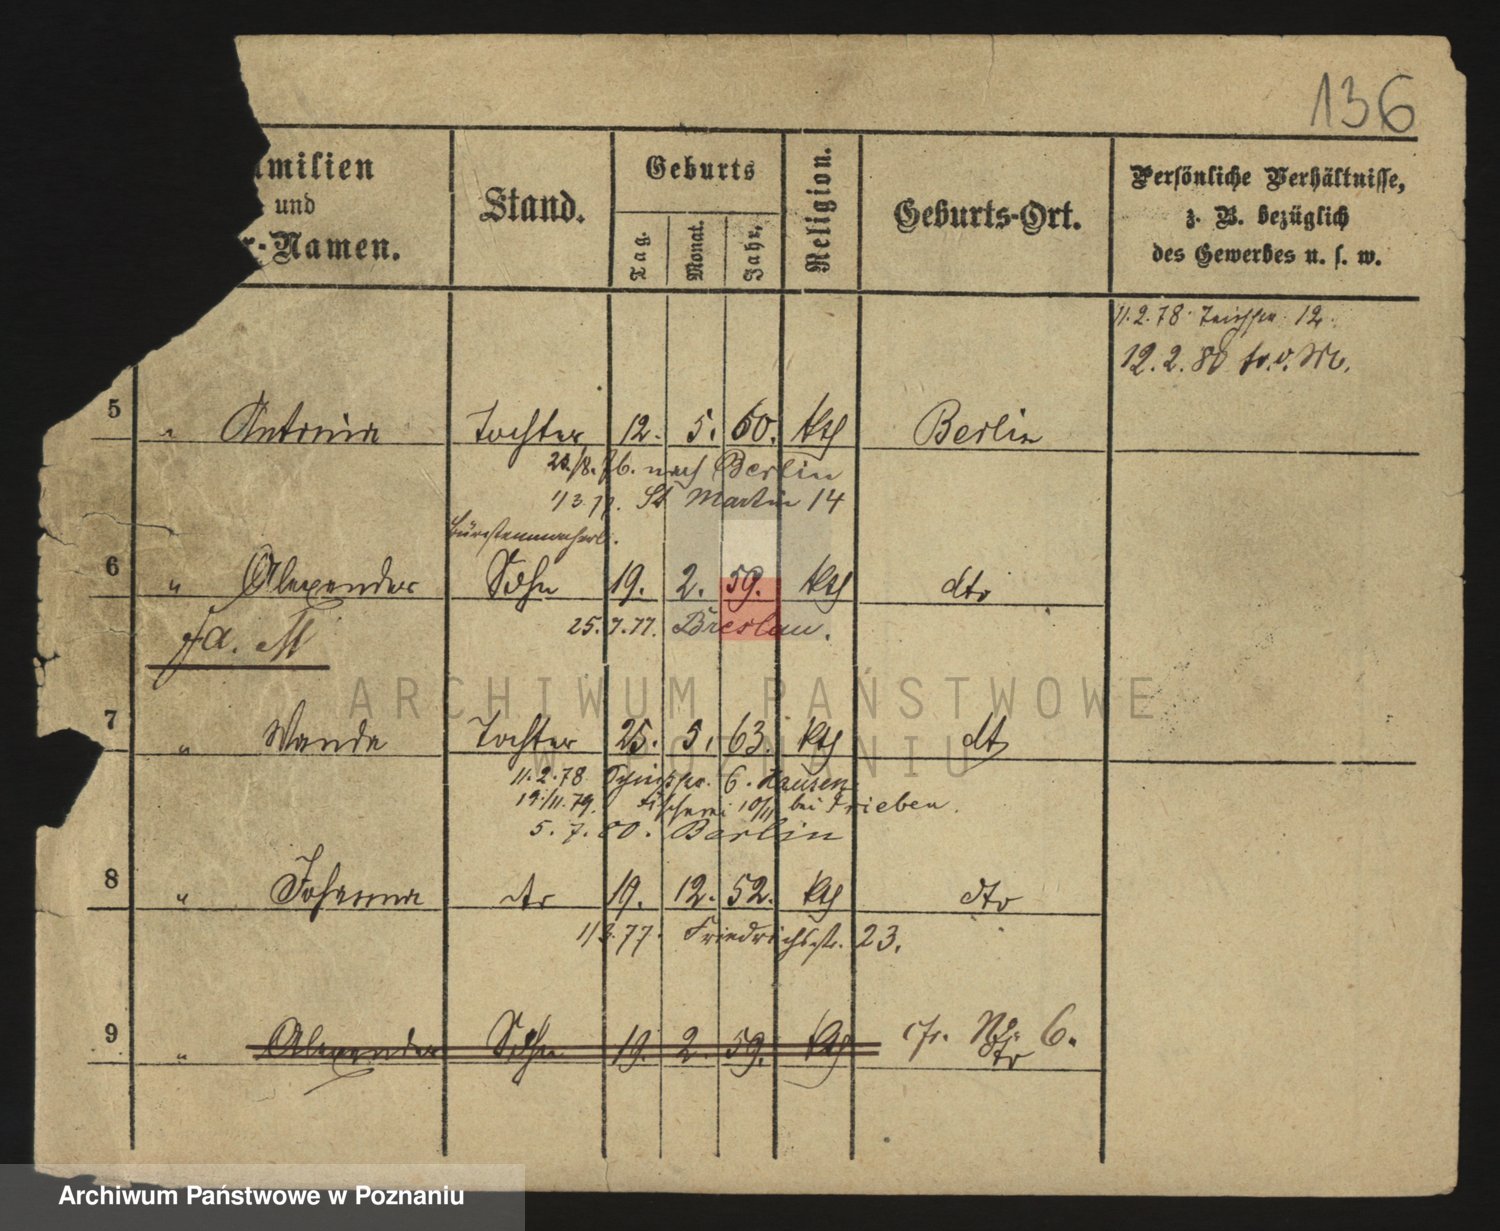 136
amilien
und
r-Namen.
Stand.
Geburts
Tag.
Monat.
Jahr.
Religion.
Geburts-Ort.
Persönliche Verhältnisse,
z. B. bezüglich
des Gewerbes u. s. w.
11.2.78 12.
12.2.80
5 " Antonia Tochter 12. 5. 60. kth Berlin
23./8.76. nach Berlin
1/3.77. St Martin 14
6 " Alexander Sohn 19. 2. 59. kth dto
25.7.77. Breslau.
7 " Wanda Tochter 25. 5. 63. kth dto
11.2.78 6.
19./11.79. Fischerei 10/11 bei Frieben.
5.7.80. Berlin
8 " Johanna dto 19. 12. 52. kth dto
1/3.77. Friedrichstr. 23.
9 " Alexander Sohn 19. 2. 59. kth cfr. No 6.
dto
ARCHIWUM PAŃSTWOWE
W POZNANIU
Archiwum Państwowe w Poznaniu